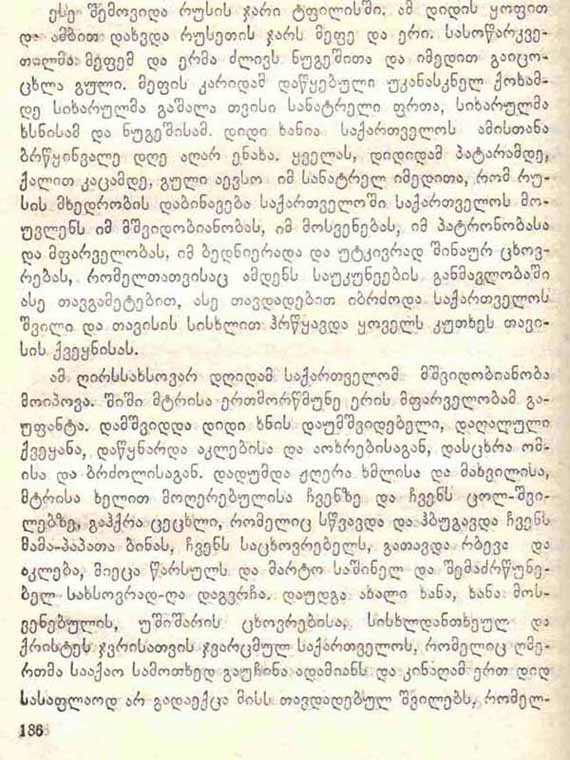 ესე შემოვიდა რუსის ჯარი ტფილისში. ამ დიდის ყოფით
და ამბით დახვდა რუსეთის ჯარს მეფე და ერი. სასოწარკვე-
თილმა მეფემ და ერმა ძლივს ნუგეშითა და იმედით გაიცო-
ცხლა გული. მეფის კარიდამ დაწყებული უკანასკნელ ქოხამ-
დე სიხარულმა გაშალა თვისი სანატრელი ფრთა, სიხარულმა
ხსნისამ და ნუგეშისამ. დიდი ხანია საქართველოს ამისთანა
ბრწყინვალე დღე აღარ ენახა. ყველას, დიდიდამ პატარამდე,
ქალით კაცამდე, გული აევსო იმ სანატრელ იმედითა, რომ რუ-
სის მხედრობის დაბინავება საქართველოში საქართველოს მო-
უვლენს იმ მშვიდობიანობას, იმ მოსვენებას, იმ პატრონობასა
და მფარველობას, იმ ბედნიერადა და უტკივრად შინაურ ცხოვ-
რებას, რომელთათვისაც ამდენს საუკუნეების განმავლობაში
ასე თავგამეტებით, ასე თავდადებით იბრძოდა საქართველოს
შვილი და თავისის სისხლით ჰრწყავდა ყოველს კუთხეს თავი-
სის ქვეყნისას.
ამ ღირსსახსოვარ დღიდამ საქართველომ მშვიდობიანობა
მოიპოვა. შიში მტრისა ერთმორწმუნე ერის მფარველობამ გა-
უფანტა. დამშვიდდა დიდი ხნის დაუმშვიდებელი, დაღალული
ქვეყანა, დაწყნარდა აკლებისა და აოხრებისაგან, დასცხრა ომ-
ისა და ბრძოლისაგან. დადუმდა ჟღერა ხმლისა და მახვილისა,
მტრისა ხელით მოღერებულისა ჩვენზე და ჩვენს ცოლ-შვი-
ლებზე, გაჰქრა ცეცხლი, რომელიც სწვავდა და ჰბუგავდა ჩვენს
მამა-პაპათა ბინას, ჩვენს საცხოვრებელს, გათავდა რბევა და
აკლება, მიეცა წარსულს და მარტო საშინელ და შემაძრწუნე-
ბელ სახსოვრად-ღა დაგვრჩა. დაუდგა ახალი ხანა, ხანა მოს-
ვენებულის, უშიშარის ცხოვრებისა, სისხლდანთხეულ და
ქრისტეს ჯვრისათვის ჯვარცმულ საქართველოს, რომელიც ღმე-
რთმა სააქაო სამოთხედ გაუჩინა ადამიანს და კინაღამ ერთ დიდ
სასაფლაოდ არ გადაექცა მისს თავდადებულ შვილებს, რომელ-
186